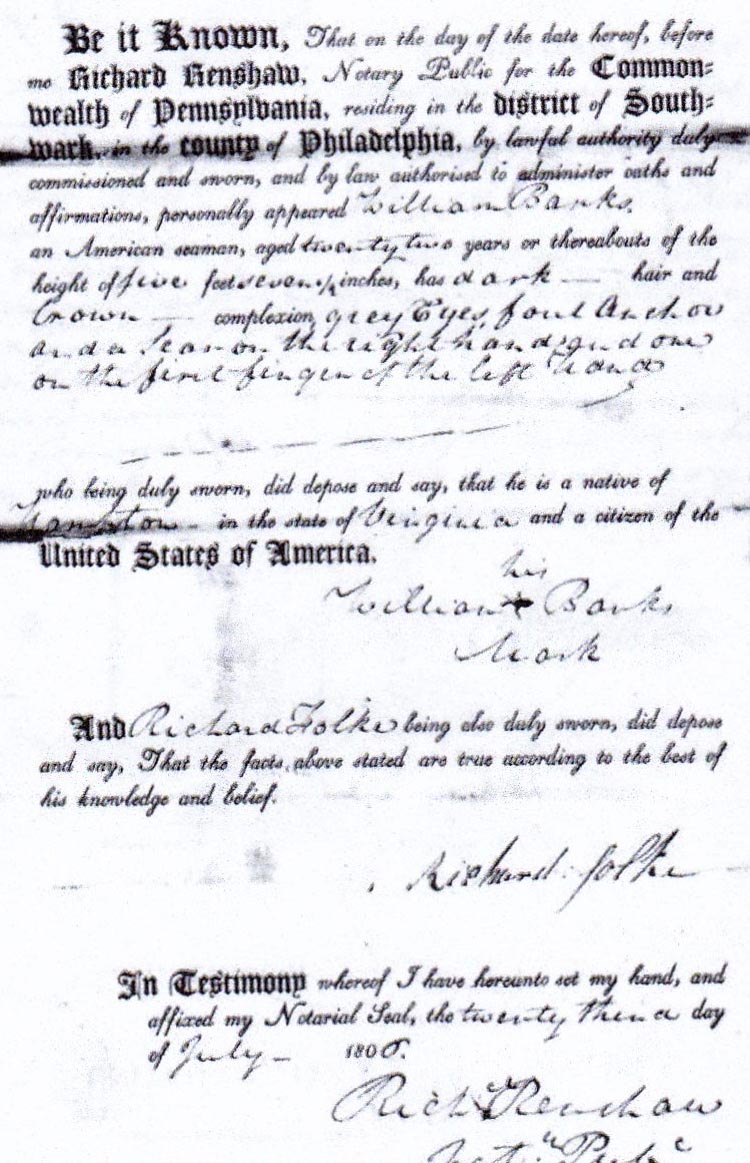 Be it Known, That on the day of the date hereof, before
me Richard Renshaw, Notary Public for the Common-
wealth of Pennsylvania, residing in the district of South-
wark, in the county of Philadelphia, by lawful authority duly
commissioned and sworn, and by law authorised to administer oaths and
affirmations, personally appeared William Banks.
an American seaman, aged twenty two years or thereabouts of the
height of five feet seven inches, has dark — hair and
Brown — complexion, grey Eyes, foul Anchor
and a Scar on the right hand, and one
on the first finger of the left hand
who being duly sworn, did depose and say, that he is a native of
in the state of Virginia and a citizen of the
United States of America.
his
William + Banks
Mark
And Richard Folke being also duly sworn, did depose
and say, That the facts above stated are true according to the best of
his knowledge and belief.
Richard Folke
In Testimony whereof I have hereunto set my hand, and
affixed my Notarial Seal, the twenty third day
of July — 180
Richd Renshaw
Noty Pub